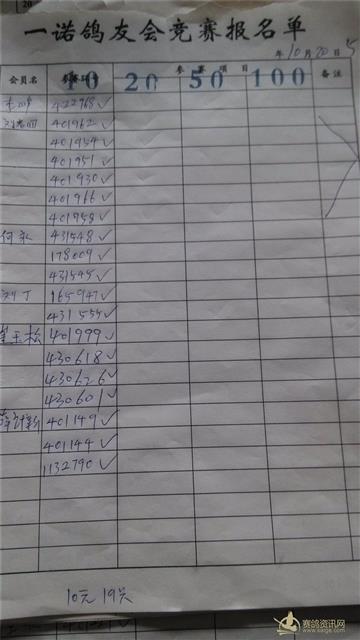 20
一诺鸽友会竞赛报名单
年10月20日5
会员名 参赛环号 参赛项目 备注
10 20 50 100
422968✓
401962✓
401954✓
401951✓
401930✓
401966✓
401958✓
何永 431548✓
178009✓
431545✓
刘丁 165947✓
431555✓
崔玉松 401999✓
430618✓
430626✓
430601✓
薛计新 401149✓
401144✓
1132790✓
10元 19只
赛鸽资讯网
www.saige.com